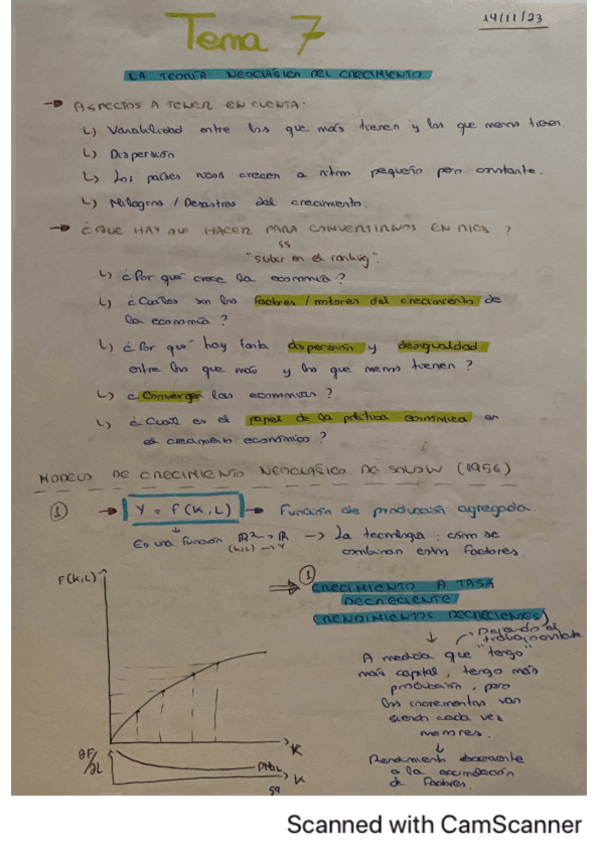 14/11/23
Tema 7
LA TEORÍA NEOCLÁSICA DEL CRECIMIENTO
ASPECTOS A TENER EN CUENTA:
Variabilidad entre los que más tienen y los que menos tienen.
Dispersión
Los países ricos crecen a ritmo pequeño pero constante.
Milagros / Desastres del crecimiento.
¿QUE HAY QUE HACER PARA CONVERTIRNOS EN RICOS?
"subir en el ranking".
¿Por qué crece la economía?
¿Cuáles son los factores / motores del crecimiento de
la economía?
¿Por qué hay tanta dispersión y desigualdad
entre los que más y los que menos tienen?
¿Convergen las economías?
¿Cuál es el papel de la política económica en
el crecimiento económico?
MODELO DE CRECIMIENTO NEOCLÁSICO DE SOLOW (1956)
① → Y = F(K,L) → Función de producción agregada.
Es una función ℝ² → ℝ → La tecnología: cómo se
(K,L) → Y combinan estos factores.
F(K,L)
K
① CRECIMIENTO A TASA
DECRECIENTE
(RENDIMIENTOS DECRECIENTES)
Dejando el
trabajo constante
A medida que "tengo"
más capital, tengo más
producción, pero
los incrementos van
siendo cada vez
menores.
Rendimiento decreciente
a la acumulación
de factores.
∂F/∂L
K
Scanned with CamScanner